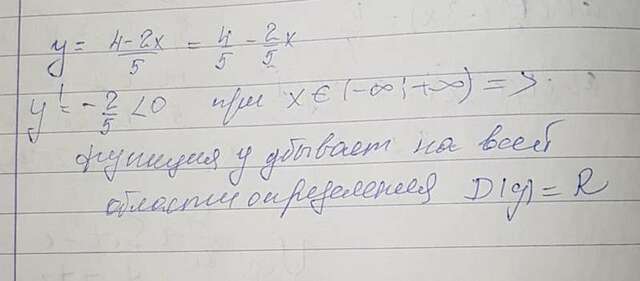 y = 4-2x/5 = 4/5 - 2/5 x
y' = -2/5 <0 при x ∈ (-∞; +∞) =>
функция y убывает на всей
области определения D(y) = R